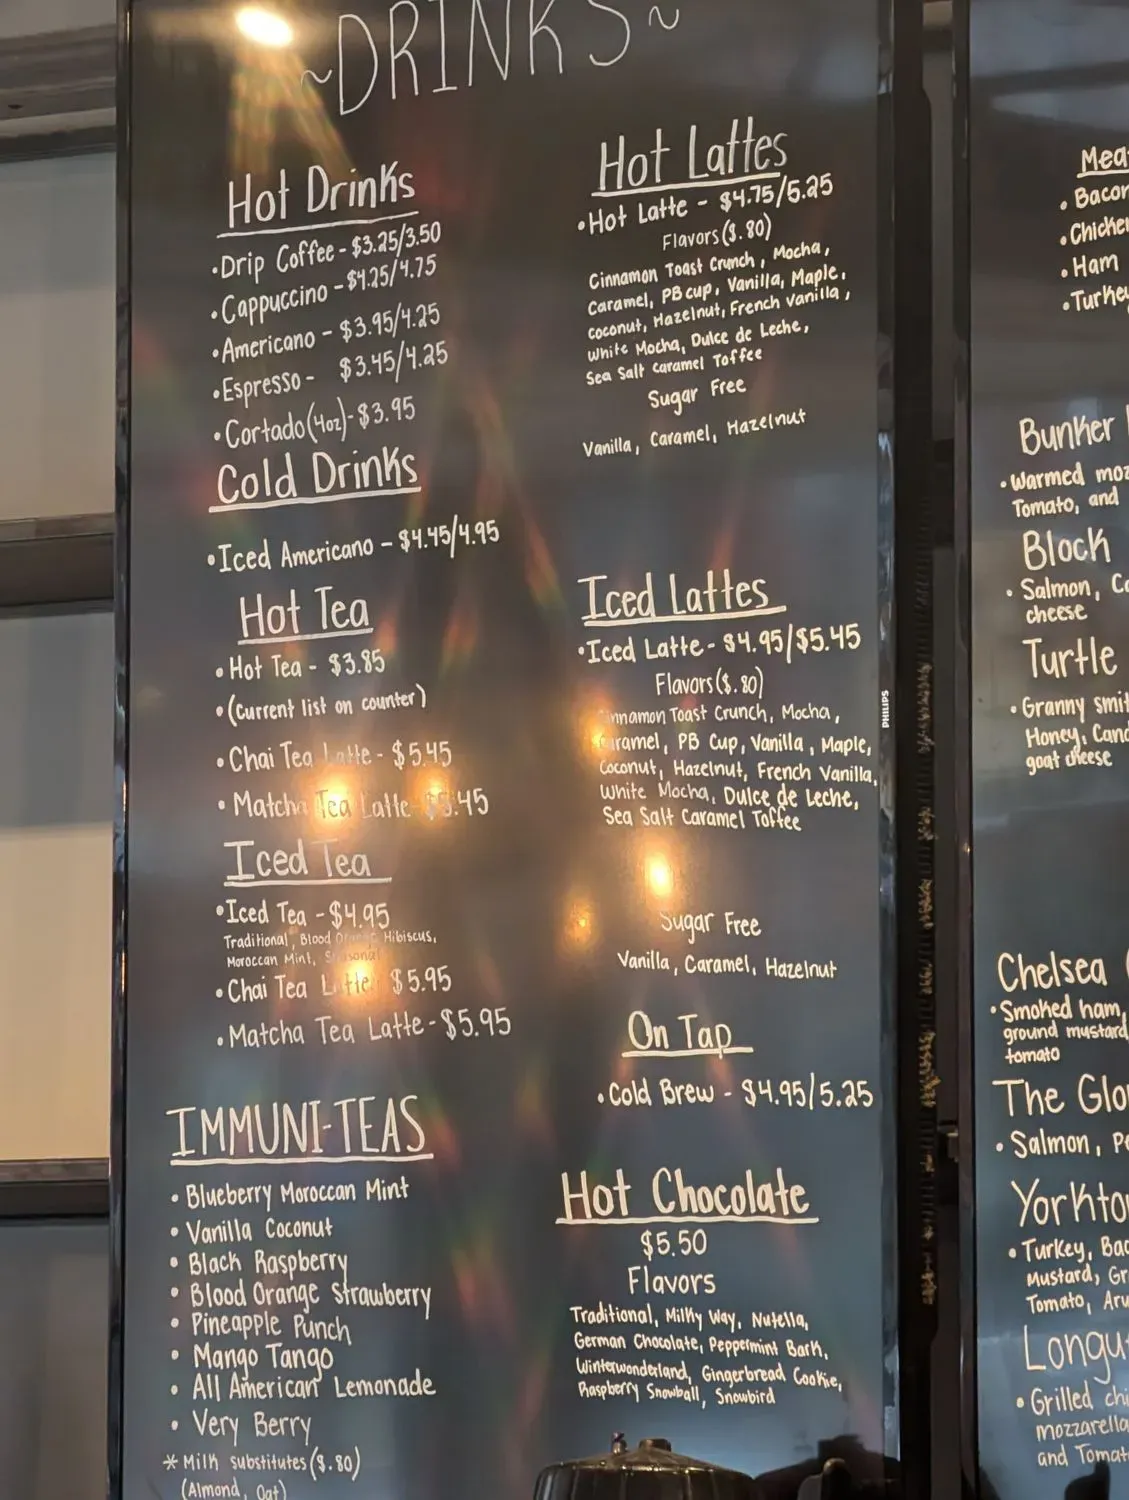 ~DRINKS~
Hot Drinks
•Drip Coffee - $3.25/3.50
•Cappuccino - $4.25/4.75
•Americano - $3.95/4.25
•Espresso - $3.45/4.25
•Cortado(4oz)- $3.95
Cold Drinks
•Iced Americano - $4.45/4.95
Hot Tea
•Hot Tea - $3.85
•(current list on counter)
•Chai Tea Latte - $5.45
•Matcha Tea Latte - $5.45
Iced Tea
•Iced Tea - $4.95
Traditional, Blood Orange Hibiscus,
Moroccan Mint, Seasonal
•Chai Tea Latte $5.95
•Matcha Tea Latte - $5.95
IMMUNI-TEAS
•Blueberry Moroccan Mint
•Vanilla Coconut
•Black Raspberry
•Blood Orange Strawberry
•Pineapple Punch
•Mango Tango
•All American Lemonade
•Very Berry
*Milk substitutes($.80)
(Almond, Oat)
Hot Lattes
•Hot Latte - $4.75/5.25
Flavors($.80)
Cinnamon Toast Crunch, Mocha,
Caramel, PB cup, Vanilla, Maple,
Coconut, Hazelnut, French Vanilla,
White Mocha, Dulce de Leche,
Sea Salt Caramel Toffee
Sugar Free
Vanilla, Caramel, Hazelnut
Iced Lattes
•Iced Latte - $4.95/$5.45
Flavors($.80)
Cinnamon Toast Crunch, Mocha,
Caramel, PB Cup, Vanilla, Maple,
Coconut, Hazelnut, French Vanilla,
White Mocha, Dulce de Leche,
Sea Salt Caramel Toffee
Sugar Free
Vanilla, Caramel, Hazelnut
On Tap
•Cold Brew - $4.95/5.25
Hot Chocolate
$5.50
Flavors
Traditional, Milky Way, Nutella,
German Chocolate, Peppermint Bark,
Winterwonderland, Gingerbread Cookie,
Raspberry Snowball, Snowbird
PHILIPS
•Ham
Bunker
•Warmed
Tomato, and
Block
•Salmon,
cheese
Turtle
•Granny
Honey,
goat cheese
Chelsea
•Smoked ham,
ground mustard
tomato
The
•Salmon,
•Turkey,
Mustard,
Tomato,
•Grilled
mozzarella
and